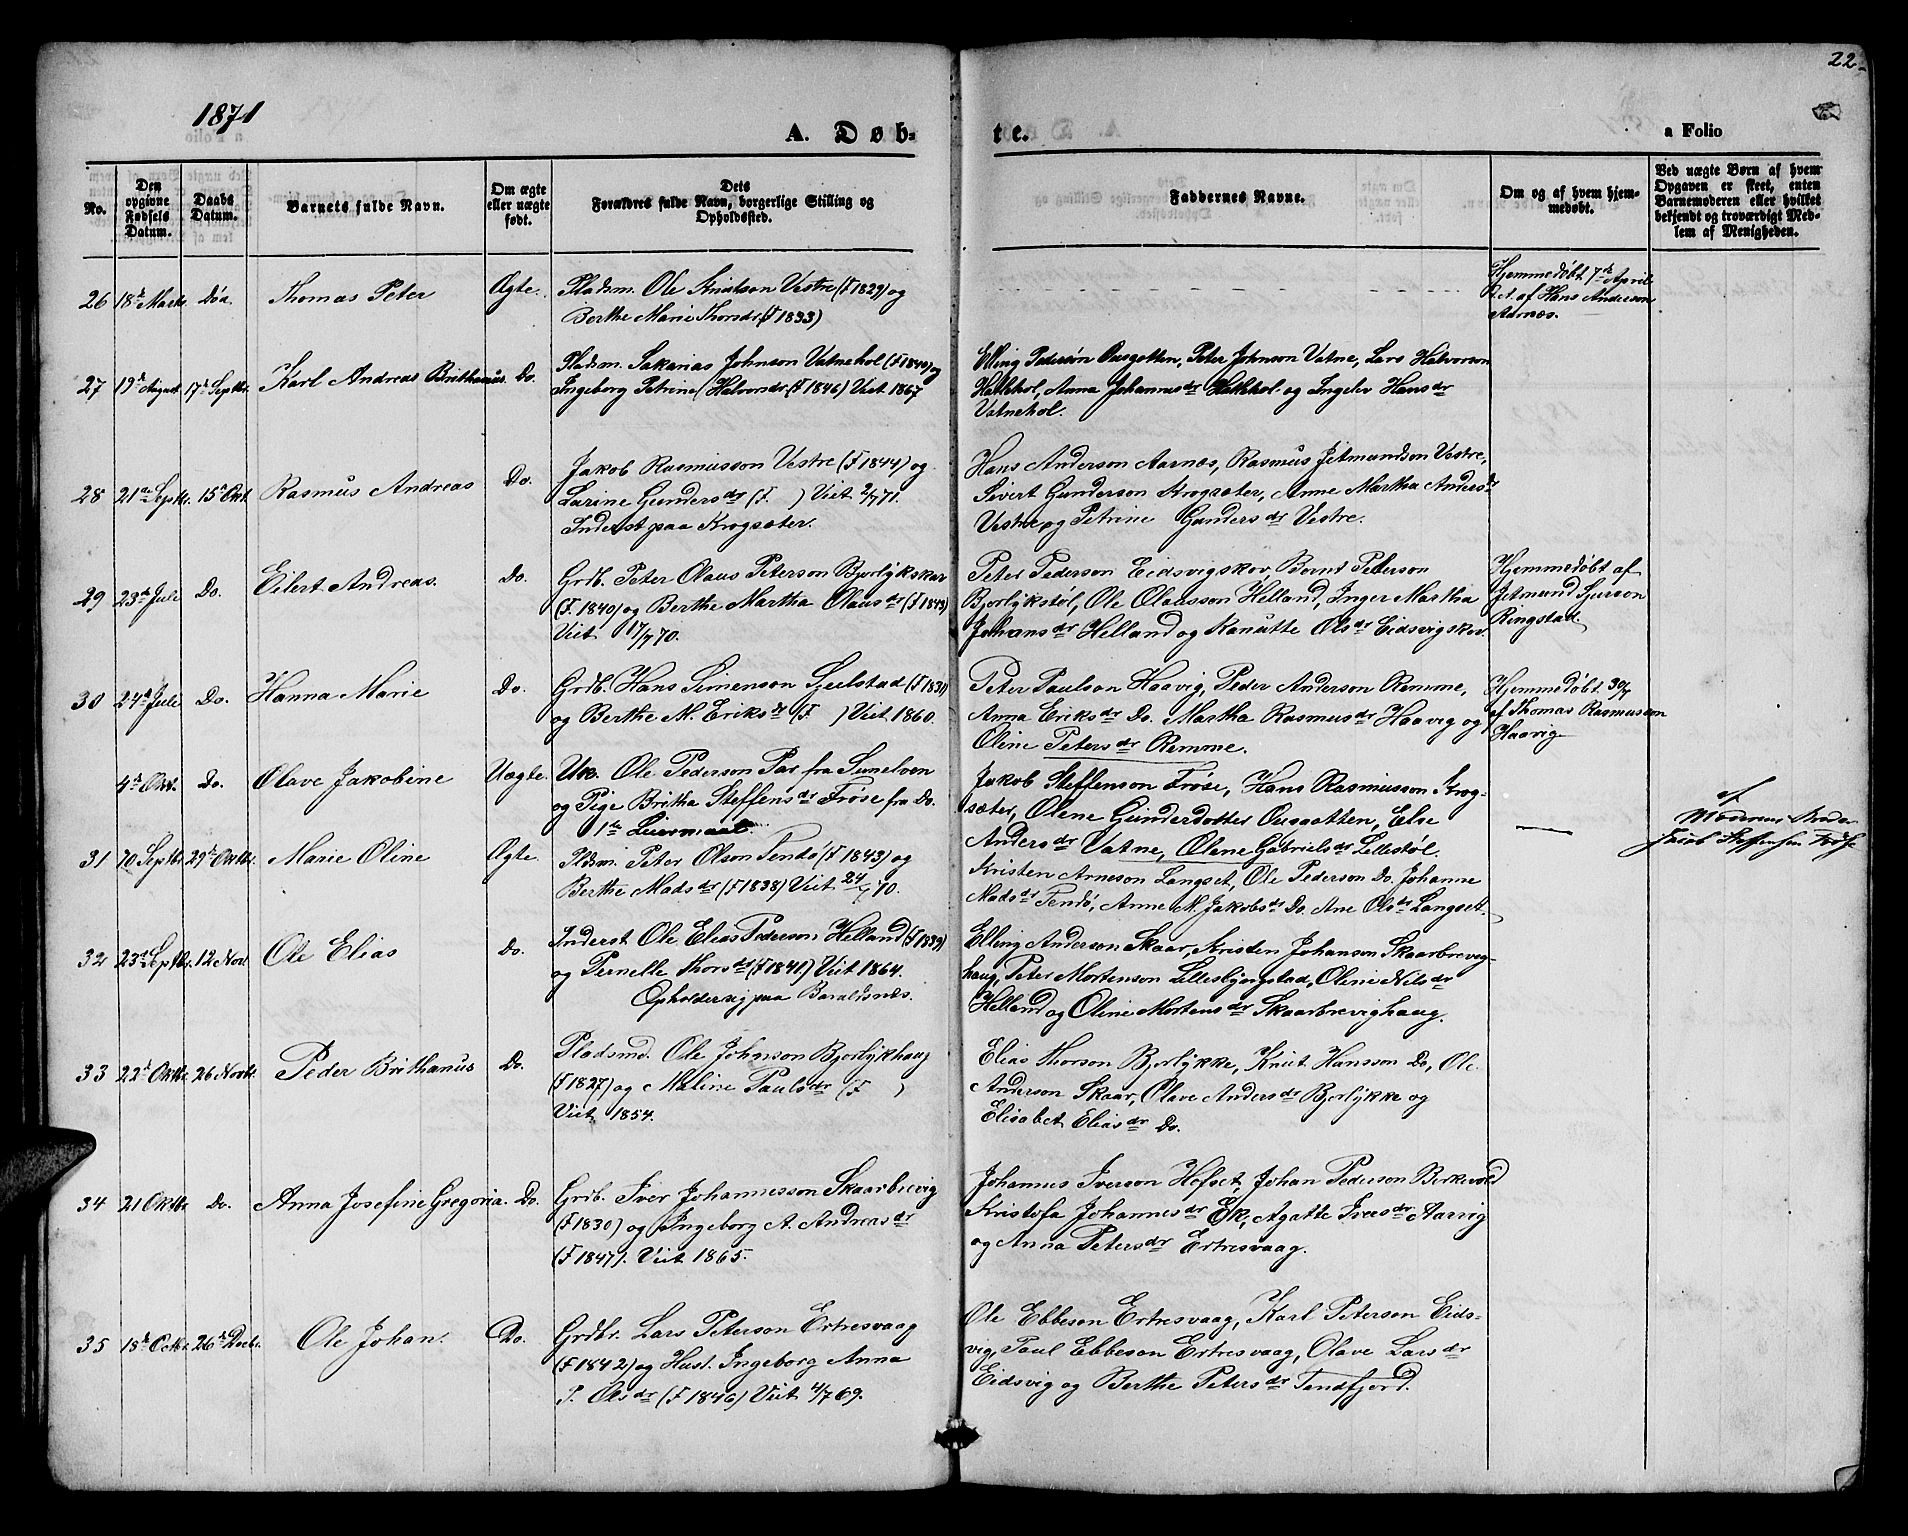 22
1871
A. Døb-
te.
a Folio
No.
Den opgivne Fødsels Datum.
Daabs Datum.
Barnets fulde Navn.
Om ægte eller uægte født.
Dets Forældres fulde Navn, borgerlige Stilling og Opholdssted.
Faddernes Navne.
Om og af hvem hjemmedøbt.
Ved uægte Børn af hvem Opgaven er skeet, enten Barnemoderen eller hvilket bekjendt og troværdigt Medlem af Menigheden.
26 18de Marts Døa. Thomas Peter Ægte. Pladsm. Ole Knutson Vestre (F 1829) og
Berthe Marie Thorsdr (F 1833)
Hjemmedøbt 7de April
af Hans Anderson
Aarnæs.
27 19de August 17de Septbr. Karl Andreas Brithanus. Do. Pladsm. Sakarias Johnson Vatnehol (F 1840) og
Ingeborg Petrine Halvorsdr (F 1846) Viet 1867
Elling Pederson Ousgotten, Peter Johnson Vatne, Lars Halvorson
Helkhol, Anna Johannesdr Helkhol og Ingelev Hansdr
Vatnehol.
28 21de Septbr. 15de Okt. Rasmus Andreas Do. Jakob Rasmusson Vestre (F 1844) og
Larine Gundersdr (F. ) Viet 2/7 71.
Inderst paa Krogsæter.
Hans Anderson Aarnæs, Rasmus Jetmundson Vestre,
Sivert Gunderson Krogsæter, Anne Martha Andersdr
Vestre og Petrine Gundersdr Vestre.
29 23de Juli Do. Eilert Andreas. Do. Grdb. Peter Olaus Peterson Bjørlykskar
(F. 1840) og Berthe Martha Olausdr (F 1849)
Viet 17/7 70.
Peter Pederson Eidsvigskov, Bernt Peterson
Bjorlykstøl, Ole Olausson Helland, Inger Martha
Johansdr Helland og Kanutte Olsdr Eidsvigskov.
Hjemmedøbt af
Jetmund Sjurson
Ringstad.
30 24de Juli Do. Hanna Marie Do. Grdb. Hans Simenson Gjelstad (F 1831)
og Berthe M. Eriksdr (F. ) Viet 1860.
Peter Paulson Haavig, Peder Anderson Remme,
Anna Eriksdr Do. Martha Rasmusdr Haavig og
Oline Petersdr Remme.
Hjemmedøbt 30/7
af Thomas Rasmusson
Haavig
4de Okt. Do. Olave Jakobine Uægte. Uk. Ole Pederson Par fra Sunelven
og Pige Britha Steffensdr Frøse fra Do.
1te Leiermaal.
Jakob Steffenson Frøse, Hans Rasmusson Krog-
sæter, Olene Gunderdotter Ousgotten, Else
Andersdr Vatne, Olene Gabrielsdr Lillestøl.
af
Moderens Broder
Jacob Steffensen Frøse
31 10 Septbr. 29de Oktbr. Marie Oline Ægte. Pldsm. Peter Olson Tendø (F 1843) og
Berthe Madsdr (F 1838) Viet 24/7 70.
Kristen Arneson Langset, Ole Pederson Do. Johanne
Madsdr Tendø, Anne M. Jakobsdr Do. Ane Olsdr Langset.
32 23de Septbr. 12 Nov. Ole Elias Do. Inderst Ole Elias Pederson Helland (F 1839)
og Pernelle Thorsdr (F 1841) Viet 1864.
Opholder sig paa Baraldsnæs.
Elling Anderson Skaar, Kristen Johanson Skaarbrevig-
haug, Peter Mortenson Lillesbyngstad, Oline Nilsdr
Helland og Oline Mortensdr Skaarbrevighaug.
33 22de Oktbr 26 Novbr. Peder Brithanus Do. Pladsmd. Ole Johanson Bjorlykhaug
(F 1827) og Maline Paulsdr (F )
Viet 1854.
Elias Thorson Bjorlykke, Knut Hansson Do, Ole
Anderson Skaar, Olave Andersdr Bjorlykke og
Elisabet Eliasdr Do.
34 21 Oktbr Do. Anna Josefine Gregoria. Do. Grdb. Iver Johannesson Skaarbrevig
(F 1830) og Ingeborg A. Andreasdr
(F 1847). Viet 1865.
Johannes Iverson Hofset, Johan Pederson Berkevold
Kristofa Johannesdr Ek, Agatte Iversdr Aarvig
og Anna Petersdr Ertresvaag.
35 18de Octbr. 26de Decbr. Ole Johan. Do. Grdbr. Lars Peterson Ertresvaag
(F 1842) og Hust. Ingeborg Anna
P. Olsdr (F 1846) Viet 4/7 69.
Ole Ebbeson Ertresvaag, Karl Peterson Eids-
vig, Paul Ebbeson Ertresvaag, Olave Larsdr
Eidsvig og Berthe Petersdr Tendfjord.